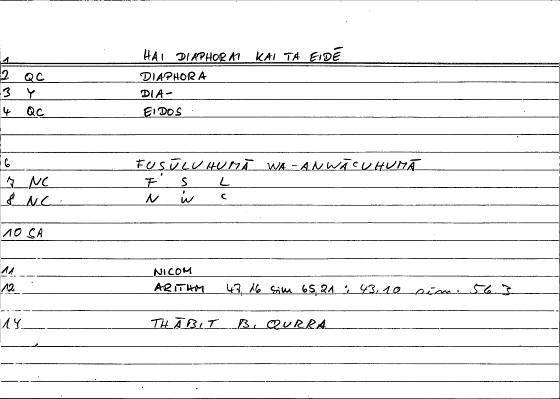 1 HAI DIAPHORAI KAI TA EIDĒ
2 QC DIAPHORA
3 Y DIA-
4 QC EIDOS
6 FUṢŪLUHUMĀ WA-ANWĀCUHUMĀ
7 NC F Ṣ L
8 NC N W C
10 SA
11 NICOM
12 ARITHM 47,16 sim 65,21 : 43,10 sim. 56.3
14 THĀBIT B. QURRA